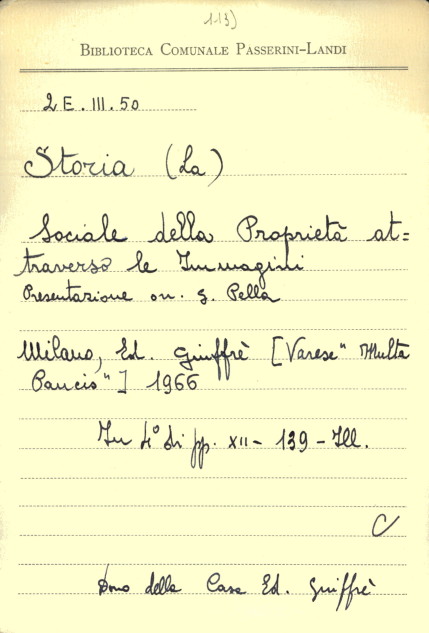 113)
BIBLIOTECA COMUNALE PASSERINI-LANDI
2 E. III. 50
Storia (La)
Sociale della Proprietà at=
traverso le Immagini
Presentazione on. G. Pella
Milano, Ed. Giuffrè [Varese "Multa
Paucis"] 1966
In 4° di pp. XII - 139 - Ill.
C
Dono della Casa Ed. Giuffrè